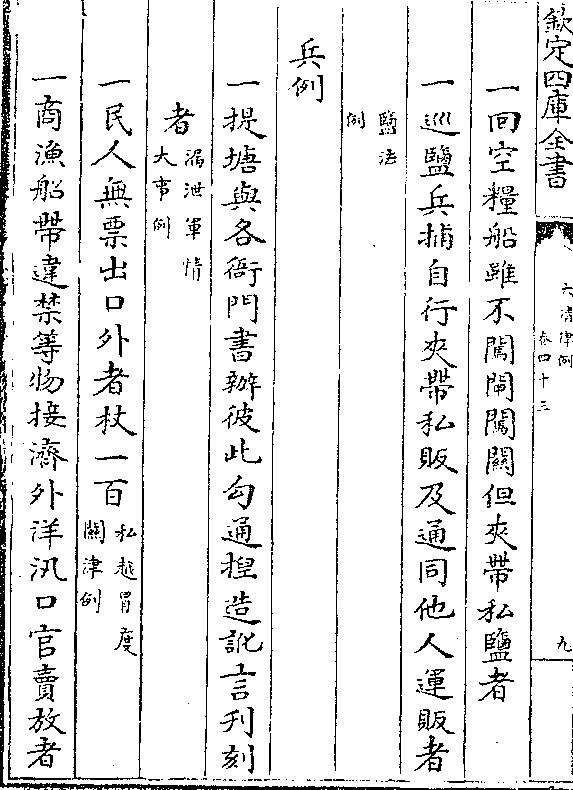 欽定四庫全書
大清律例
卷四十三
九
一回空糧船雖不闖閘闖關但夾帶私鹽者
一巡鹽兵捕自行夾帶私販及通同他人運販者
鹽法
例
兵例
一提塘與各衙門書辦彼此勾通揑造訛言刋刻
者
漏泄軍情
大事例
一民人無票出口外者杖一百
私越冒度
關津例
一商漁船帶違禁等物接濟外洋汛口官賣放者